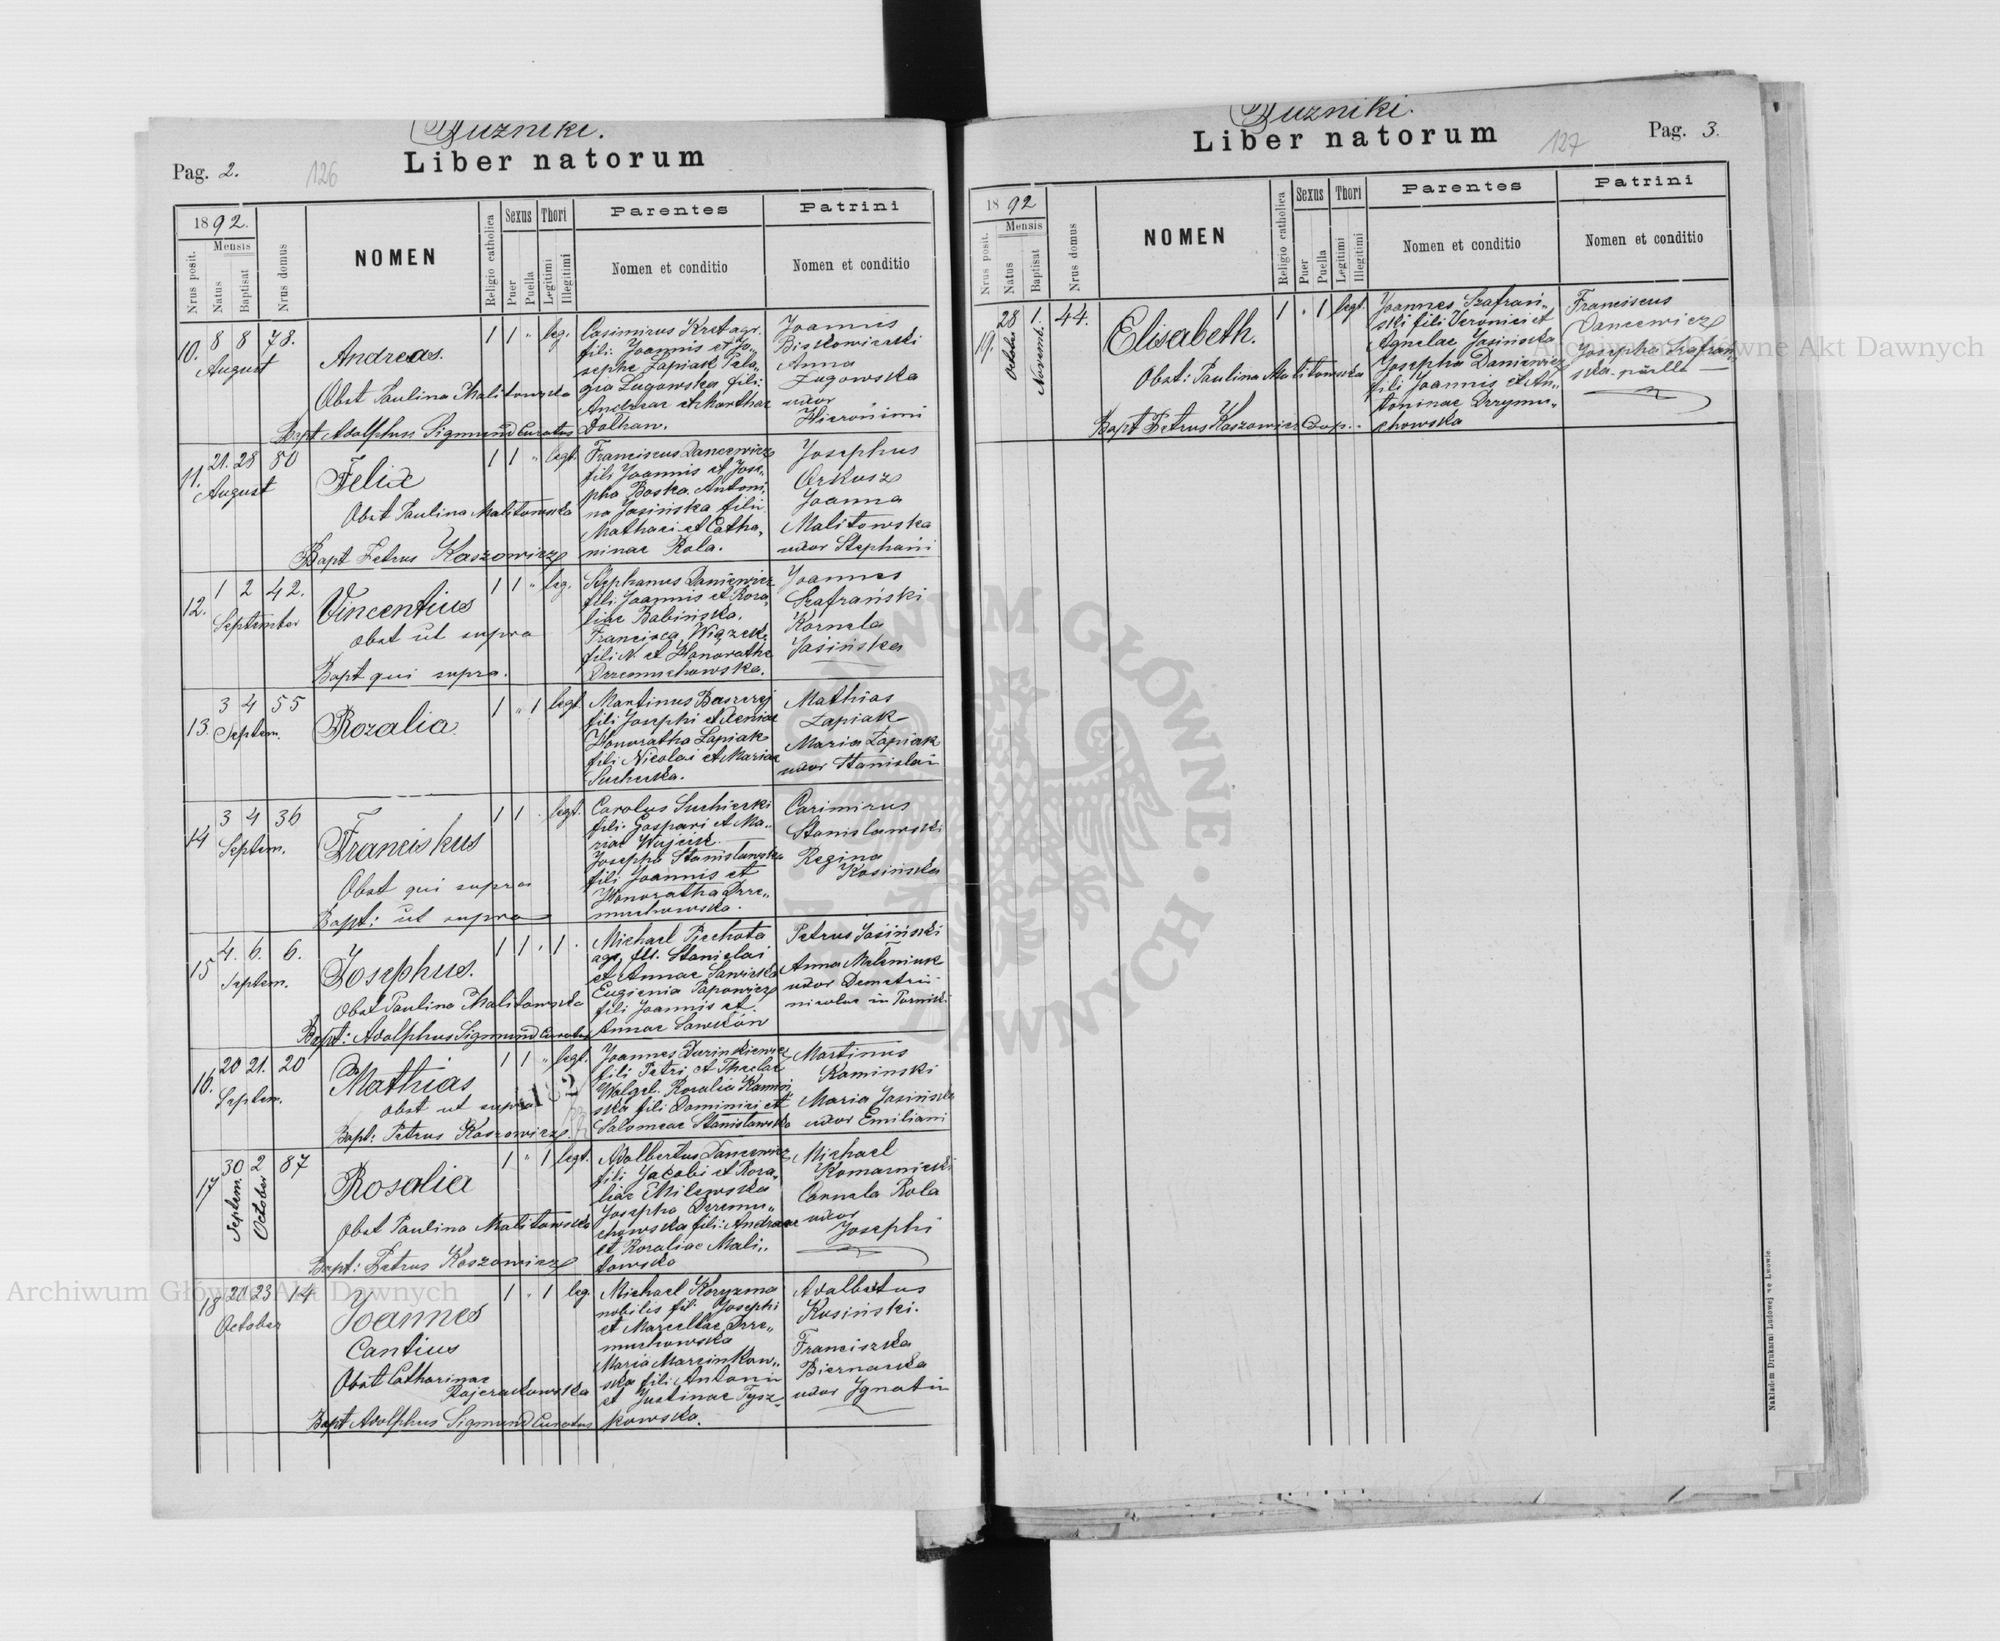 Buzniki.
Liber natorum
Pag. 2.
126
1892.
Mensis
Nrus posit.
Natus
Baptisat
Nrus domus
NOMEN
Religio catholica
Sexus
Puer
Puella
Thori
Legitimi
Illegitimi
Parentes
Nomen et conditio
Patrini
Nomen et conditio
10. 8 8 78.
August
Andreas.
Obst Paulina Malitowska
Bapt Adolphus Sigmund Curatus
1 1 " leg.
Casimirus Kret agr.
fili. Joannis et Jo-
sephe Łapiak Pela-
gia Ługowska fili.
Andreae et Marthae
Dolhan.
Joannes
Biskowierski
Anna
Ługowska
uxor
Hieronimi
11. 21. 28 80
August
Felix
Obst Paulina Malitowska
Bapt Petrus Kaszowicz
1 1 " legt.
Franciscus Dancewicz
fili Joannis et Jose-
pha Boska. Antoni-
na Jasińska filii
Mathaei et Catha-
rinae Rola.
Josephus
Orkusz
Joanna
Malitowska
uxor Stephani
12. 1 2 42.
September
Vincentius
obst ut supra
Bapt qui supra.
1 1 " leg.
Stephanus Daniewicz
fili Joannis et Rosa-
liae Babińska.
Francisca Wiązek
fili N. et Honoratha
Drzemuchowska.
Joannes
Szafrański
Kornela
Jasińska
13. 3 4 55
Septem.
Rozalia
1 " 1 legt
Martinus Baszczej
fili Josephi et Xeniae
Honoratha Łapiak
fili Nicolai et Mariae
Suchecka.
Mathias
Łapiak
Maria Łapiak
uxor Stanislai
14 3 4 36
Septem.
Franciskus
Obst qui supra
Bapt: ut supra
1 1 . legt.
Carolus Suchicki
fili. Gaspari et Ma-
riae Wojcik.
Josepha Stanisławska
fili Joannis et
Honoratha Drze-
muchowska.
Casimirus
Stanisławski
Regina
Kosińska
15 4. 6. 6.
Septem.
Josephus.
Obst Paulina Malitowska
Bapt: Adolphus Sigmund Curatus
1 1 . 1 .
Michael Piechota
agr. fil. Stanislai
et Annae Sawicka
Eugienia Papowicz
fili Joannis et
Annae Sawkón
Petrus Jasiński
Anna Melniuk
uxor Demetrii
16. 20 21. 20
Septem.
Mathias
obst ut supra
Bapt: Petrus Kaszowicz.
1 1 " legt.
Joannes Durinkiewicz
fili Petri et Theclae
Walget. Rosalia Kamin-
ska fili Dominici et
Salomeae Stanisławska
Martinus
Kaminski
Maria Jasińska
uxor Emiliani
17 30 2 87
Septem.
October
Rosalia
Obst Paulina Malitowska
Bapt: Petrus Kaszowicz
1 " 1 legt.
Adalbertus Dancewicz
fili Jacobi et Rosa-
liae Milewska
Josepha Drzemu-
chowska fili: Andreae
et Rosaliae Mali-
towska
Michael
Komarnicki
Carmela Rola
uxor
Josephi
18 20 23 14
October
Joannes
Cantius
Obst Catharinae
Rajczakowska
Bapt Adolphus Sigmund Curatus
1 . 1 leg
Michael Koryzma
nobilis fil Josephi
et Marcellae Drze-
muchowska
Maria Marcinkow-
ska fili Antonii
et Justinae Tysz-
kowska.
Adalbertus
Kosiński.
Franciszka
Biernacka
uxor Ignatii
Buzniki.
Liber natorum
127
Pag. 3.
1892
Mensis
Nrus posit.
Natus
Baptisat
Nrus domus
NOMEN
Religio catholica
Sexus
Puer
Puella
Thori
Legitimi
Illegitimi
Parentes
Nomen et conditio
Patrini
Nomen et conditio
19. 28 1. 44.
October
Novemb.
Elisabeth.
Obst: Paulina Malitowska
Bapt Petrus Kaszowicz Exp.
1 . 1 legt.
Joannes Szafrań-
ski fili Veronici et
Agnelae Jasińska
Josepha Daniewicz
fili Joannis et An-
toninae Drzymu-
chowska
Franciscus
Dancewicz
Josepha Szafrań-
ska puella
Nakładem Drukarni Ludowej we Lwowie.
Archiwum Główne Akt Dawnych
Archiwum Główne Akt Dawnych
ARCHIWUM GŁÓWNE AKT DAWNYCH